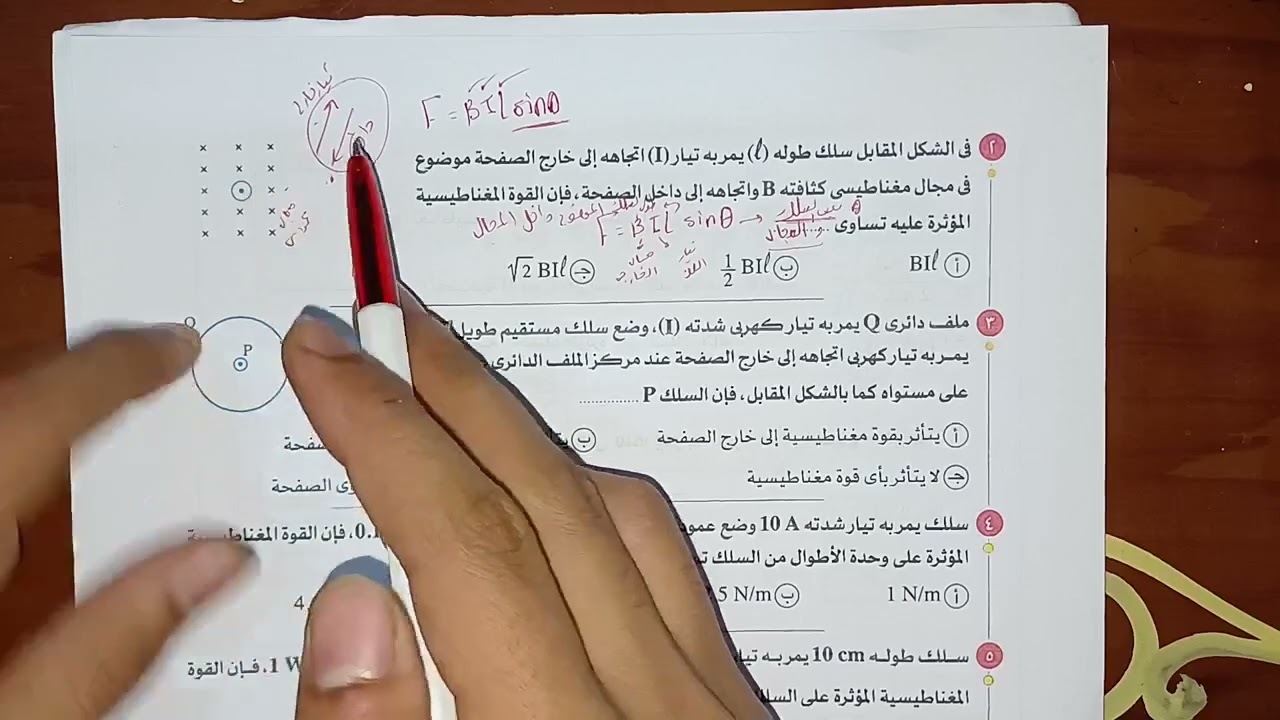 F = BIL sinθ
٢ فى الشكل المقابل سلك طوله (ℓ) يمر به تيار (I) اتجاهه إلى خارج الصفحة موضوع
فى مجال مغناطيسى كثافته B واتجاهه إلى داخل الصفحة، فإن القوة المغناطيسية
المؤثرة عليه تساوى
F = BIL sinθ → θ
أ BIℓ
ب 1/2 BIℓ
ج √2 BIℓ
٣ ملف دائرى Q يمر به تيار كهربى شدته (I)، وضع سلك مستقيم طويل
يمر به تيار كهربي اتجاهه إلى خارج الصفحة عند مركز الملف الدائرى
على مستواه كما بالشكل المقابل، فإن السلك P ..............
Q
P
أ يتأثر بقوة مغناطيسية إلى خارج الصفحة
ب
ج لا يتأثر بأى قوة مغناطيسية
الصفحة
٤ سلك يمر به تيار شدته 10 A وضع
فإن القوة المغناطيسية
المؤثرة على وحدة الأطوال من السلك
أ 1 N/m
ب 5 N/m
4
٥ سلك طوله 10 cm يمر به
فإن القوة
المغناطيسية المؤثرة على